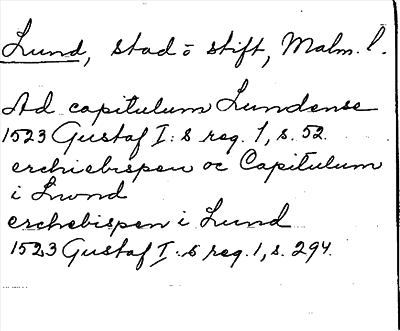 Lund, stad o stift, Malm. l.
Ad capitulum Lundense
1523 Gustaf I:s reg. 1, s. 52.
erchiebispen oc Capitulum
i Lwnd
erchebispen i Lund
1523 Gustaf I:s reg. 1, s. 294.